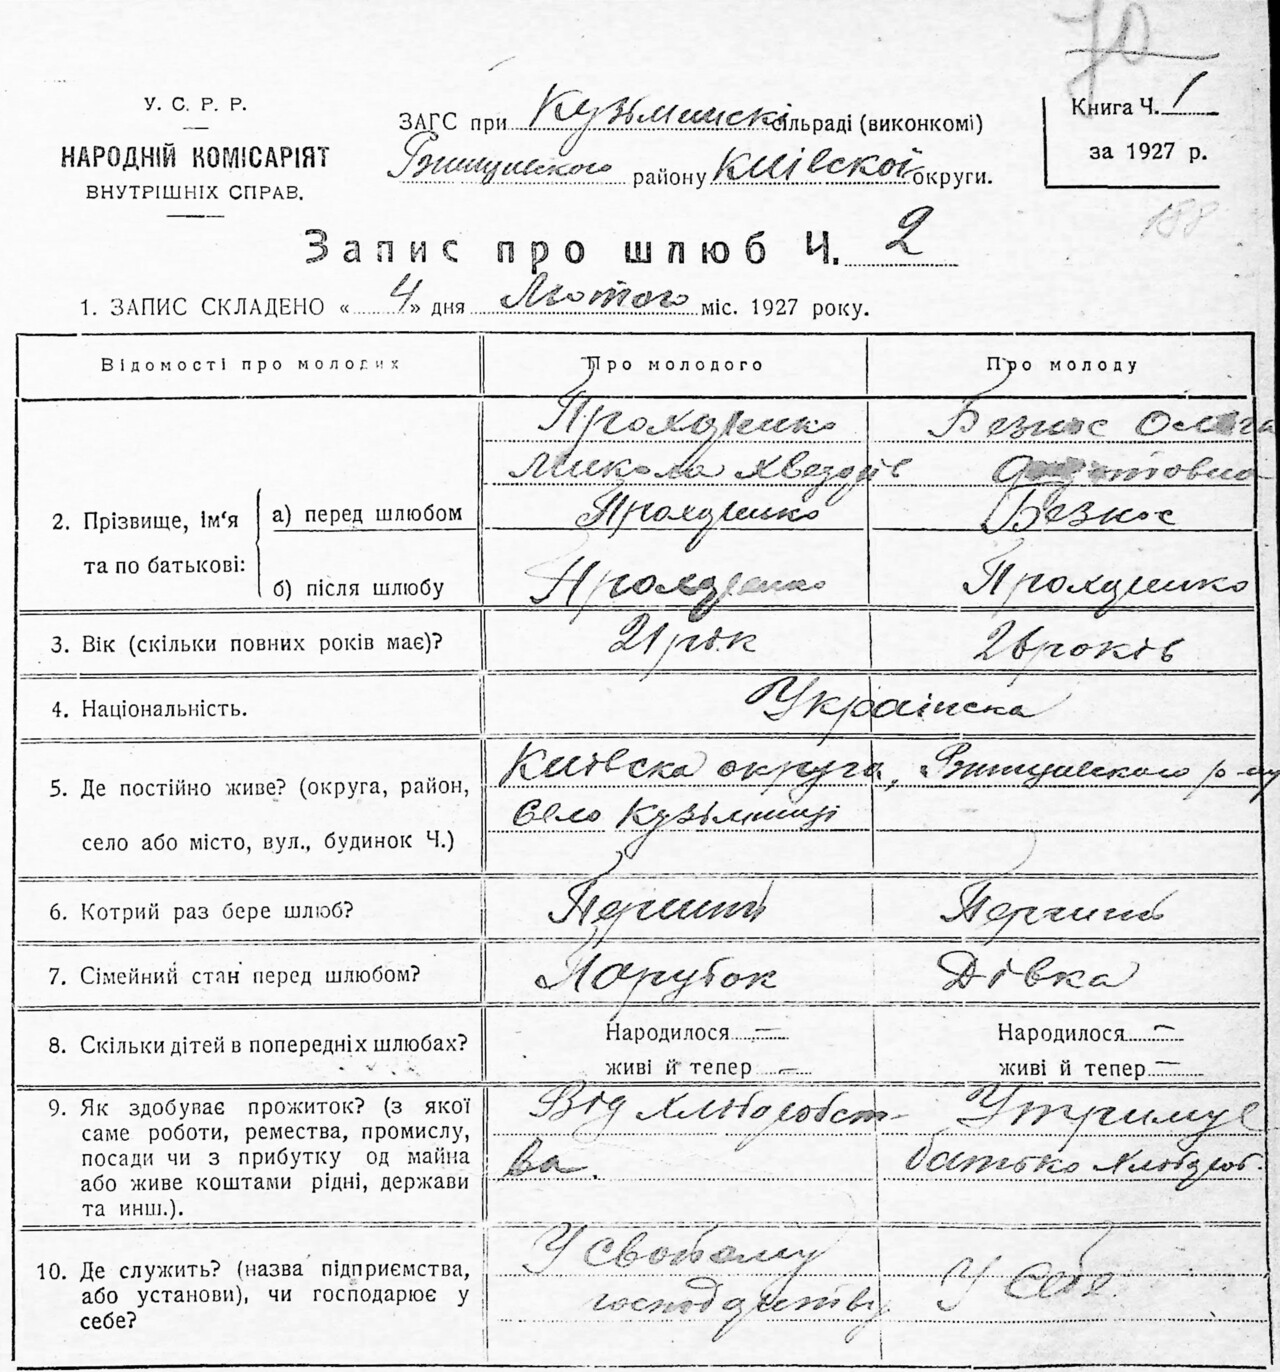 70
У. С. Р. Р.
НАРОДНІЙ КОМІСАРІЯТ
ВНУТРІШНІХ СПРАВ.
ЗАГС при Кузьминскі сільраді (виконкомі)
Ржищивского району Київскої округи.
Книга Ч. 1
за 1927 р.
188
Запис про шлюб Ч. 2
1. ЗАПИС СКЛАДЕНО « 4 » дня Лютого міс. 1927 року.
Відомості про молодих Про молодого Про молоду
2. Прізвище, ім‘я та по батькові:
Безкос
Микола
а) перед шлюбом Безкос
б) після шлюбу
3. Вік (скільки повних років має)? 21 рік
4. Національність. Українска
5. Де постійно живе? (округа, район, Київска округа, Ржищивского р-ну
село або місто, вул., будинок Ч.) село Кузьминці
6. Котрий раз бере шлюб? Перший Перший
7. Сімейний стан перед шлюбом? Парубок Дівка
8. Скільки дітей в попередніх шлюбах? Народилося — Народилося —
живі й тепер — живі й тепер —
9. Як здобуває прожиток? (з якої Від хлібородст- Утримує
саме роботи, ремества, промислу, ва. батько хлібороб.
посади чи з прибутку од майна
або живе коштами рідні, держави
та инш.).
10. Де служить? (назва підприємства, У своєму У себе.
або установи), чи господарює у господарстві
себе?